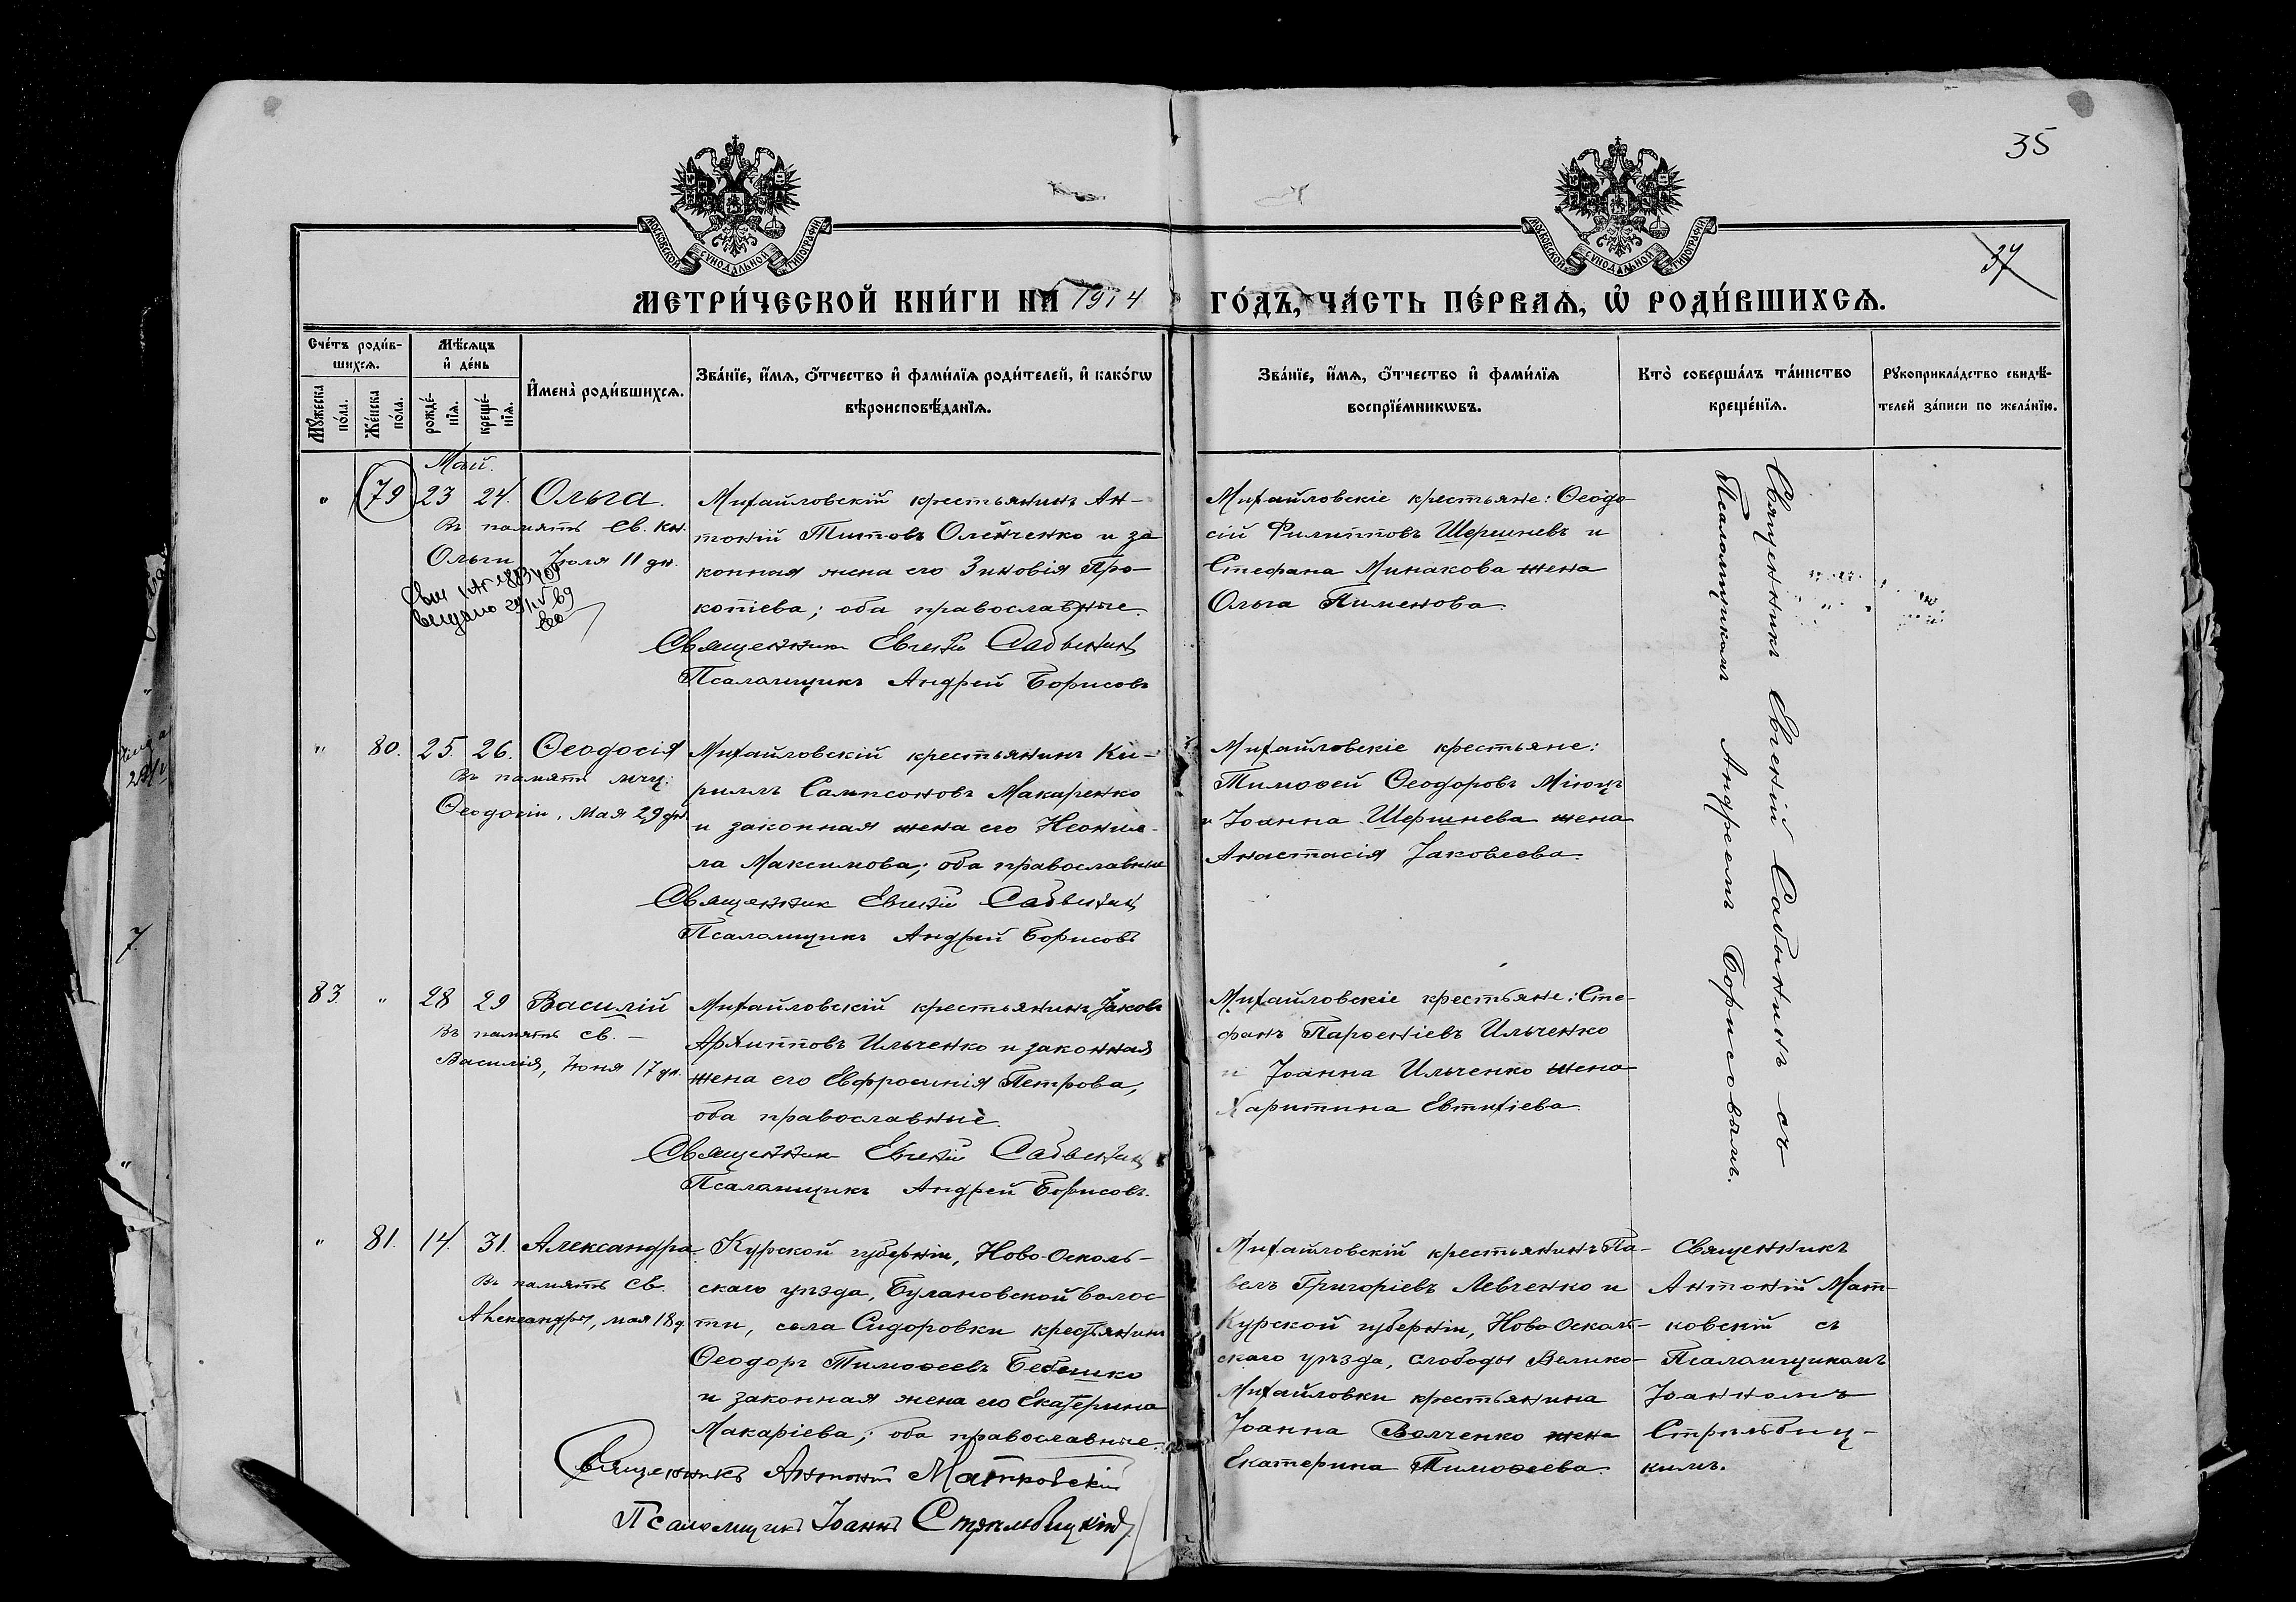 35
37
МОСКОВСКОЙ СѴНОДАЛЬНОЙ ТИПОГРАФІИ
МОСКОВСКОЙ СѴНОДАЛЬНОЙ ТИПОГРАФІИ
МЕТРИ́ЧЕСКОЙ КНИ́ГИ НА 1914 ГО́ДЪ, ЧА́СТЬ ПЕ́РВАѦ, Ѡ РОДИ́ВШИХСѦ.
Сче́тъ роди́в-
шихсѧ.
Мꙋжеска по́ла.
Же́нска по́ла.
Мѣ́сѧцъ
и҆ де́нь
рожде́-
нїѧ.
креще́-
нїѧ.
И҆мена̀ роди́вшихсѧ.
Зва́нїе, и҆́мѧ, ѻ҆́тчество и҆ фами́лїѧ роди́телей, и҆ како́гѡ
вѣроисповѣ́данїѧ.
Зва́нїе, и҆́мѧ, ѻ҆́тчество и҆ фами́лїѧ
воспрїе́мникѡвъ.
Кто̀ соверша́лъ та́инство
креще́нїѧ.
Рꙋкоприкла́дство свидѣ́-
телей за́писи по жела́нїю.
Май.
" 79 23 24. Ольга.
Въ память Св. Кн.
Ольги Іюля 11 дн.
выдано
Михайловскій крестьянинъ Ан-
тоній Титовъ Олейченко и за
конная жена его Зиновія Про-
копіева; оба православные.
Священник Евгеній Сабынин
Псаломщикъ Андрей Борисовъ
Михайловскіе крестьяне: Ѳеодо-
сій Филипповъ Шершневъ и
Стефана Минакова жена
Ольга Пименова.
Священникъ Евгеній Сабынинъ съ
Псаломщикомъ Андреемъ Борисовымъ.
" 80. 25. 26. Ѳеодосія
Въ память мчц.
Ѳеодосіи, Мая 29 дн.
Михайловскій крестьянинъ Ки-
риллъ Сампсоновъ Макаренко
и законная жена его Неонил-
ла Максимова; оба православные
Священник Евгеній Сабынин
Псаломщикъ Андрей Борисовъ
Михайловскіе крестьяне:
Тимоѳей Ѳеодоровъ Міюцъ
и Іоанна Шершнева жена
Анастасія Іаковлева.
83. " 28 29 Василій
Въ память св.
Василія, Іюня 17 дн.
Михайловскій крестьянинъ Іаковъ
Архипповъ Ильченко и законная
жена его Евфросинія Петрова,
оба православные.
Священник Евгеній Сабынин
Псаломщикъ Андрей Борисовъ.
Михайловскіе крестьяне: Сте-
фанъ Парѳеніевъ Ильченко
и Іоанна Ильченко жена
Харитина Евтихіева.
" 81. 14. 31. Александра
Въ память Св.
Александры, мая 18 д.
Курской губерніи, Ново-Осколь-
скаго уѣзда, Булановской волос-
ти, села Сидоровки крестьянинъ
Ѳеодоръ Тимоѳеевъ Бебешко
и законная жена его Екатерина
Макаріева; оба православные.
Священникъ Антоній Матковскій
Псаломщикъ Іоаннъ Стрильбицкій
Михайловскій крестьянинъ Па-
велъ Григоріевъ Левченко и
Курской губерніи, Ново-Осколь-
скаго уѣзда, слободы Велико-
Михайловки крестьянина
Іоанна Волченко жена
Екатерина Тимоѳеева.
Священникъ
Антоній Мат-
ковскій съ
Псаломщикомъ
Іоанномъ
Стрильбиц-
кимъ.
7.